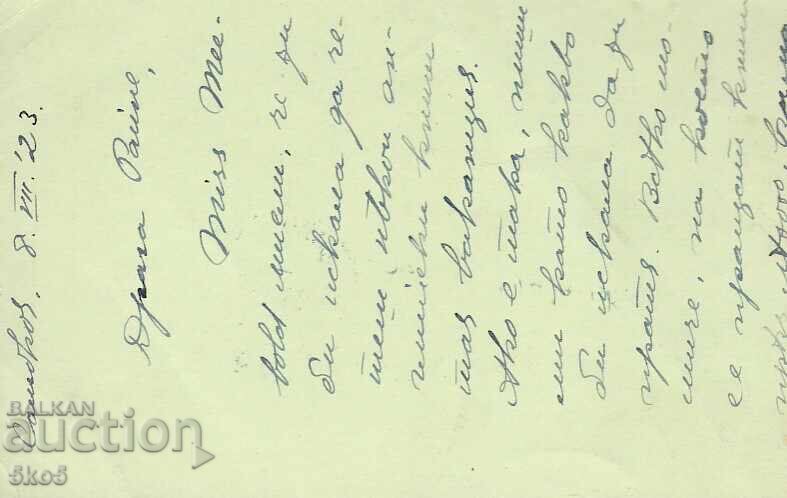 Самоков, 8.VII.'23.
Драга Райне,
Miss Mee-
bold мисли, че ти
би искала да че-
теш някои ан-
глийски книги
тая ваканция.
Ако е така, пиши
ми какво
би искала да ти
пратя. Всяко мо-
миче, на което
се пращат книги
BALKAN
auction
5ko5